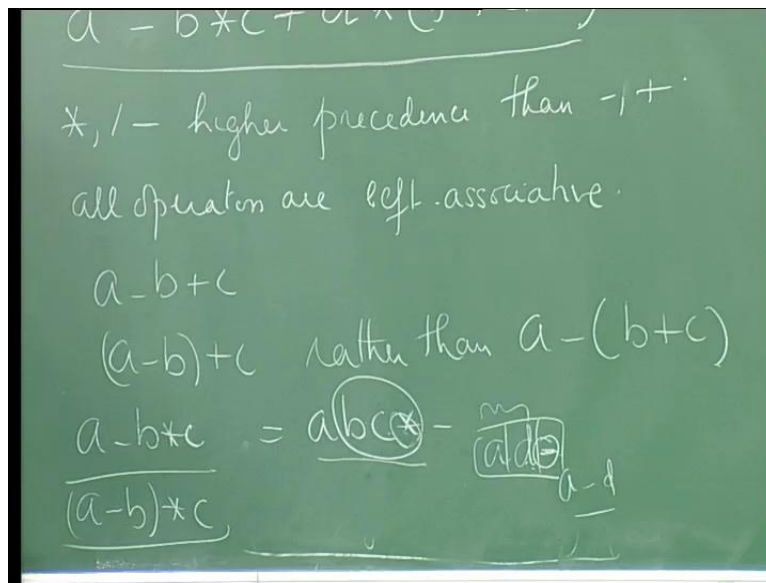 a - b*c +
*, / - higher precedence than -, +.
all operators are left associative.
a - b + c
(a - b) + c rather than a - (b + c)
a - b*c = abc* - ad-
a - d
(a - b) * c